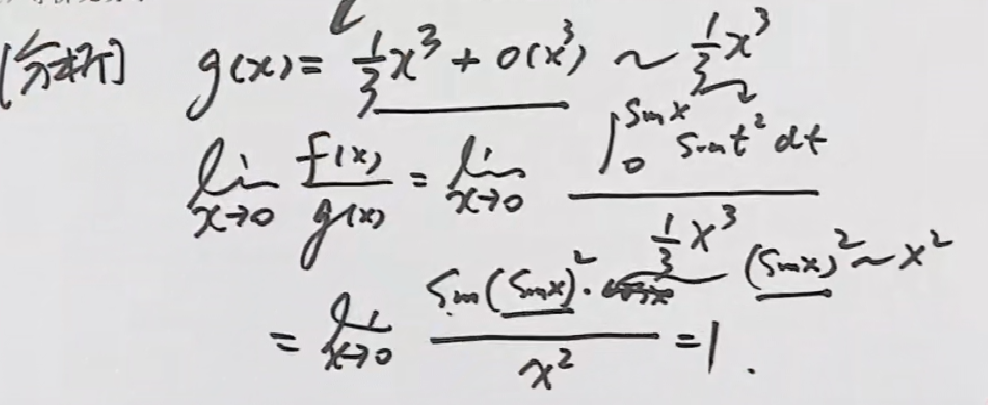 [分析] g(x) = 1/3 x³ + o(x³) ~ 1/3 x³
lim x→0 f(x)/g(x) = lim x→0 ∫₀^{sin x} sin t² dt / (1/3 x³)
= lim x→0 sin(sin x)² · / x² = 1. (sin x)² ~ x²